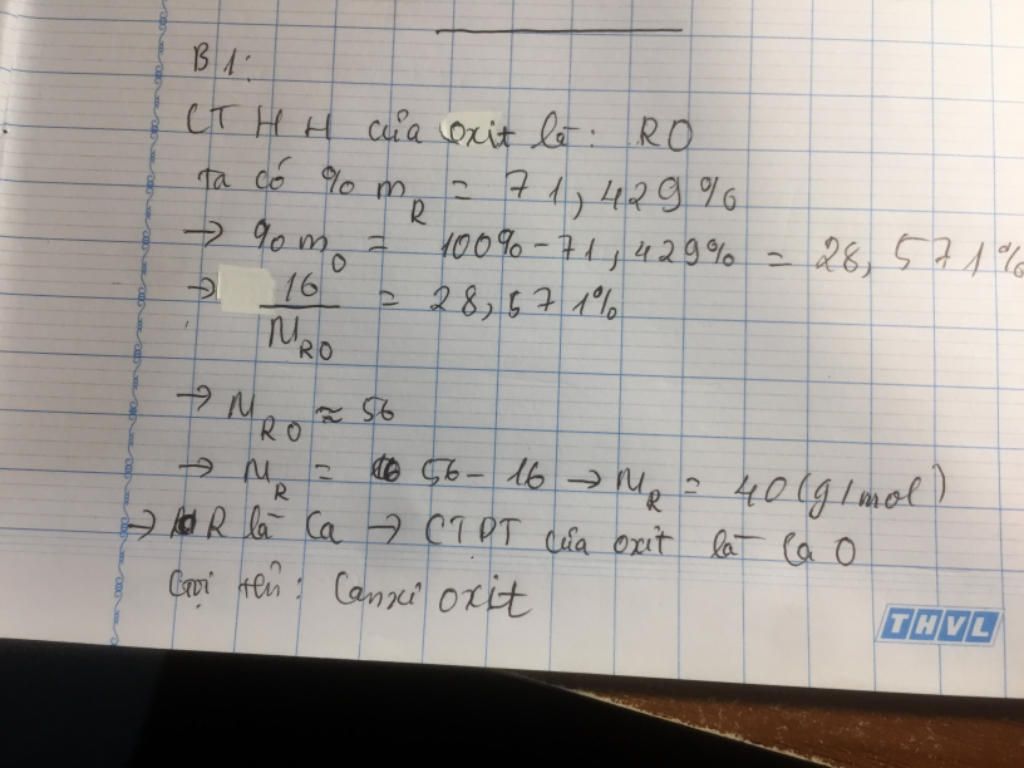 B1:
CTHH của oxit là: RO
ta có %m_R = 71,429%
→ %m_O = 100% - 71,429% = 28,571%
→ 16/M_RO = 28,571%
→ M_RO ≈ 56
→ M_R = 56 - 16 → M_R = 40 (g/mol)
→ R là Ca → CTPT của oxit là CaO
Gọi tên: Canxi oxit
THVL